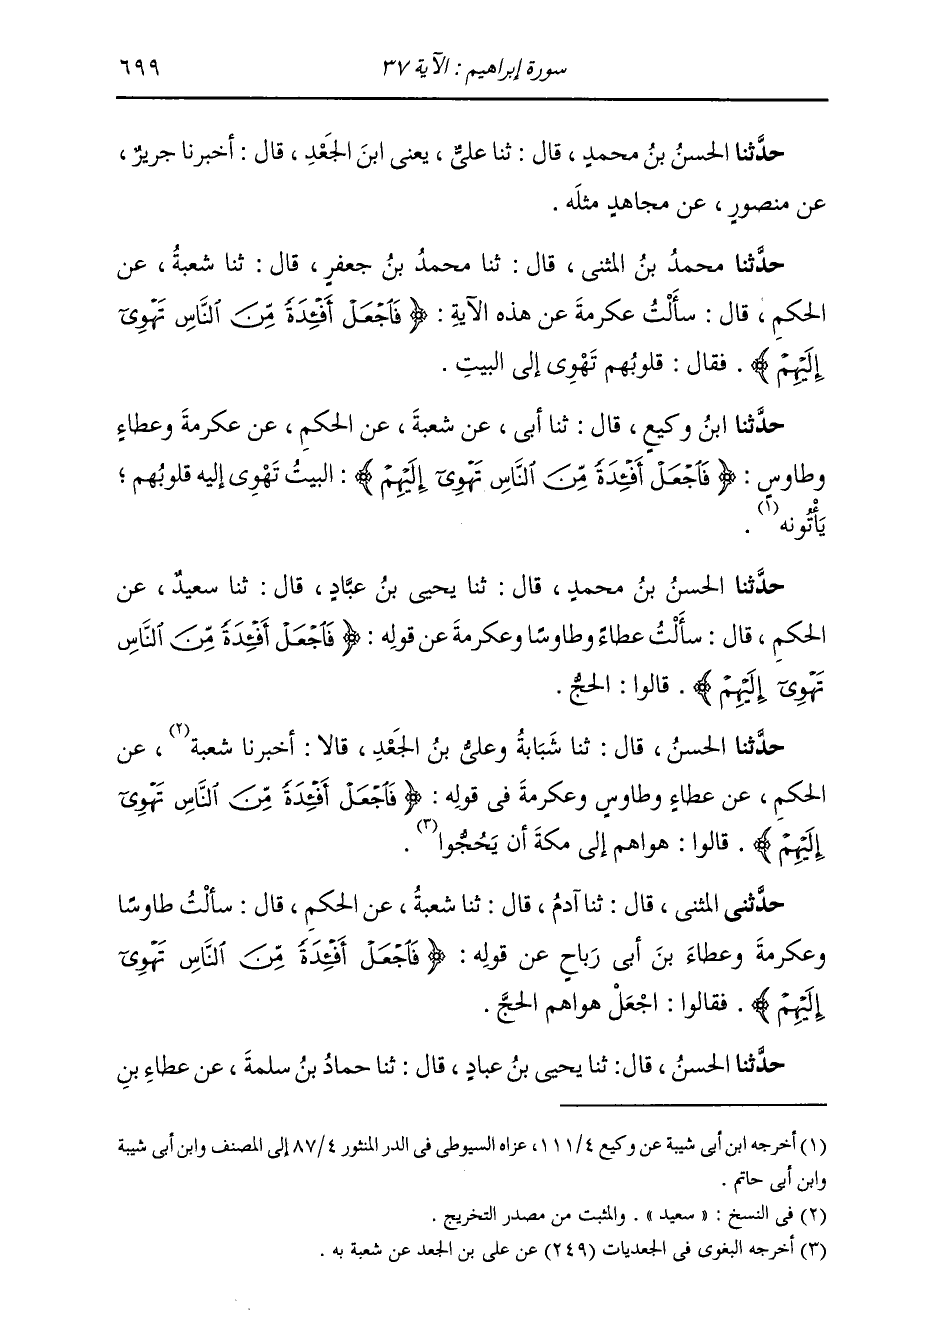 سورة إبراهيم : الآية ٣٧ ٦٩٩
حدَّثنا الحسنُ بنُ محمدٍ ، قال : ثنا علىٌّ ، يعنى ابنَ الجَعْدِ ، قال : أخبرنا جريرٌ ،
عن منصورٍ ، عن مجاهدٍ مثلَه .
حدَّثنا محمدُ بنُ المثنى ، قال : ثنا محمدُ بنُ جعفرٍ ، قال : ثنا شعبةُ ، عن
الحكمِ ، قال : سأَلْتُ عكرمةَ عن هذه الآيةِ : ﴿ فَٱجْعَلْ أَفْـِٔدَةً مِّنَ ٱلنَّاسِ تَهْوِىٓ
إِلَيْهِمْ ﴾ . فقال : قلوبُهم تَهْوِى إلى البيتِ .
حدَّثنا ابنُ وكيعٍ ، قال : ثنا أبى ، عن شعبةَ ، عن الحكمِ ، عن عكرمةَ وعطاءٍ
وطاوسٍ : ﴿ فَٱجْعَلْ أَفْـِٔدَةً مِّنَ ٱلنَّاسِ تَهْوِىٓ إِلَيْهِمْ ﴾ : البيتُ تَهْوِى إليه قلوبُهم ؛
يَأْتُونه (١) .
حدَّثنا الحسنُ بنُ محمدٍ ، قال : ثنا يحيى بنُ عبَّادٍ ، قال : ثنا سعيدٌ ، عن
الحكمِ ، قال : سأَلْتُ عطاءً وطاوسًا وعكرمةَ عن قولِه : ﴿ فَٱجْعَلْ أَفْـِٔدَةً مِّنَ ٱلنَّاسِ
تَهْوِىٓ إِلَيْهِمْ ﴾ . قالوا : الحجُّ .
حدَّثنا الحسنُ ، قال : ثنا شَبَابةُ وعلىُّ بنُ الجَعْدِ ، قالا : أخبرنا شعبة (٢) ، عن
الحكمِ ، عن عطاءٍ وطاوسٍ وعكرمةَ فى قولِه : ﴿ فَٱجْعَلْ أَفْـِٔدَةً مِّنَ ٱلنَّاسِ تَهْوِىٓ
إِلَيْهِمْ ﴾ . قالوا : هواهم إلى مكةَ أن يَحُجُّوا (٣) .
حدَّثنى المثنى ، قال : ثنا آدمُ ، قال : ثنا شعبةُ ، عن الحكمِ ، قال : سأَلْتُ طاوسًا
وعكرمةَ وعطاءَ بنَ أبى رَباحٍ عن قولِه : ﴿ فَٱجْعَلْ أَفْـِٔدَةً مِّنَ ٱلنَّاسِ تَهْوِىٓ
إِلَيْهِمْ ﴾ . فقالوا : اجْعَلْ هواهم الحجَّ .
حدَّثنا الحسنُ ، قال : ثنا يحيى بنُ عبادٍ ، قال : ثنا حمادُ بنُ سلمةَ ، عن عطاءِ بنِ
(١) أخرجه ابن أبى شيبة عن وكيع ٤/ ١١١، عزاه السيوطى فى الدر المنثور ٤/ ٨٧ إلى المصنف وابن أبى شيبة
وابن أبى حاتم .
(٢) فى النسخ : « سعيد » . والمثبت من مصدر التخريج .
(٣) أخرجه البغوى فى الجعديات (٢٤٩) عن على بن الجعد عن شعبة به .